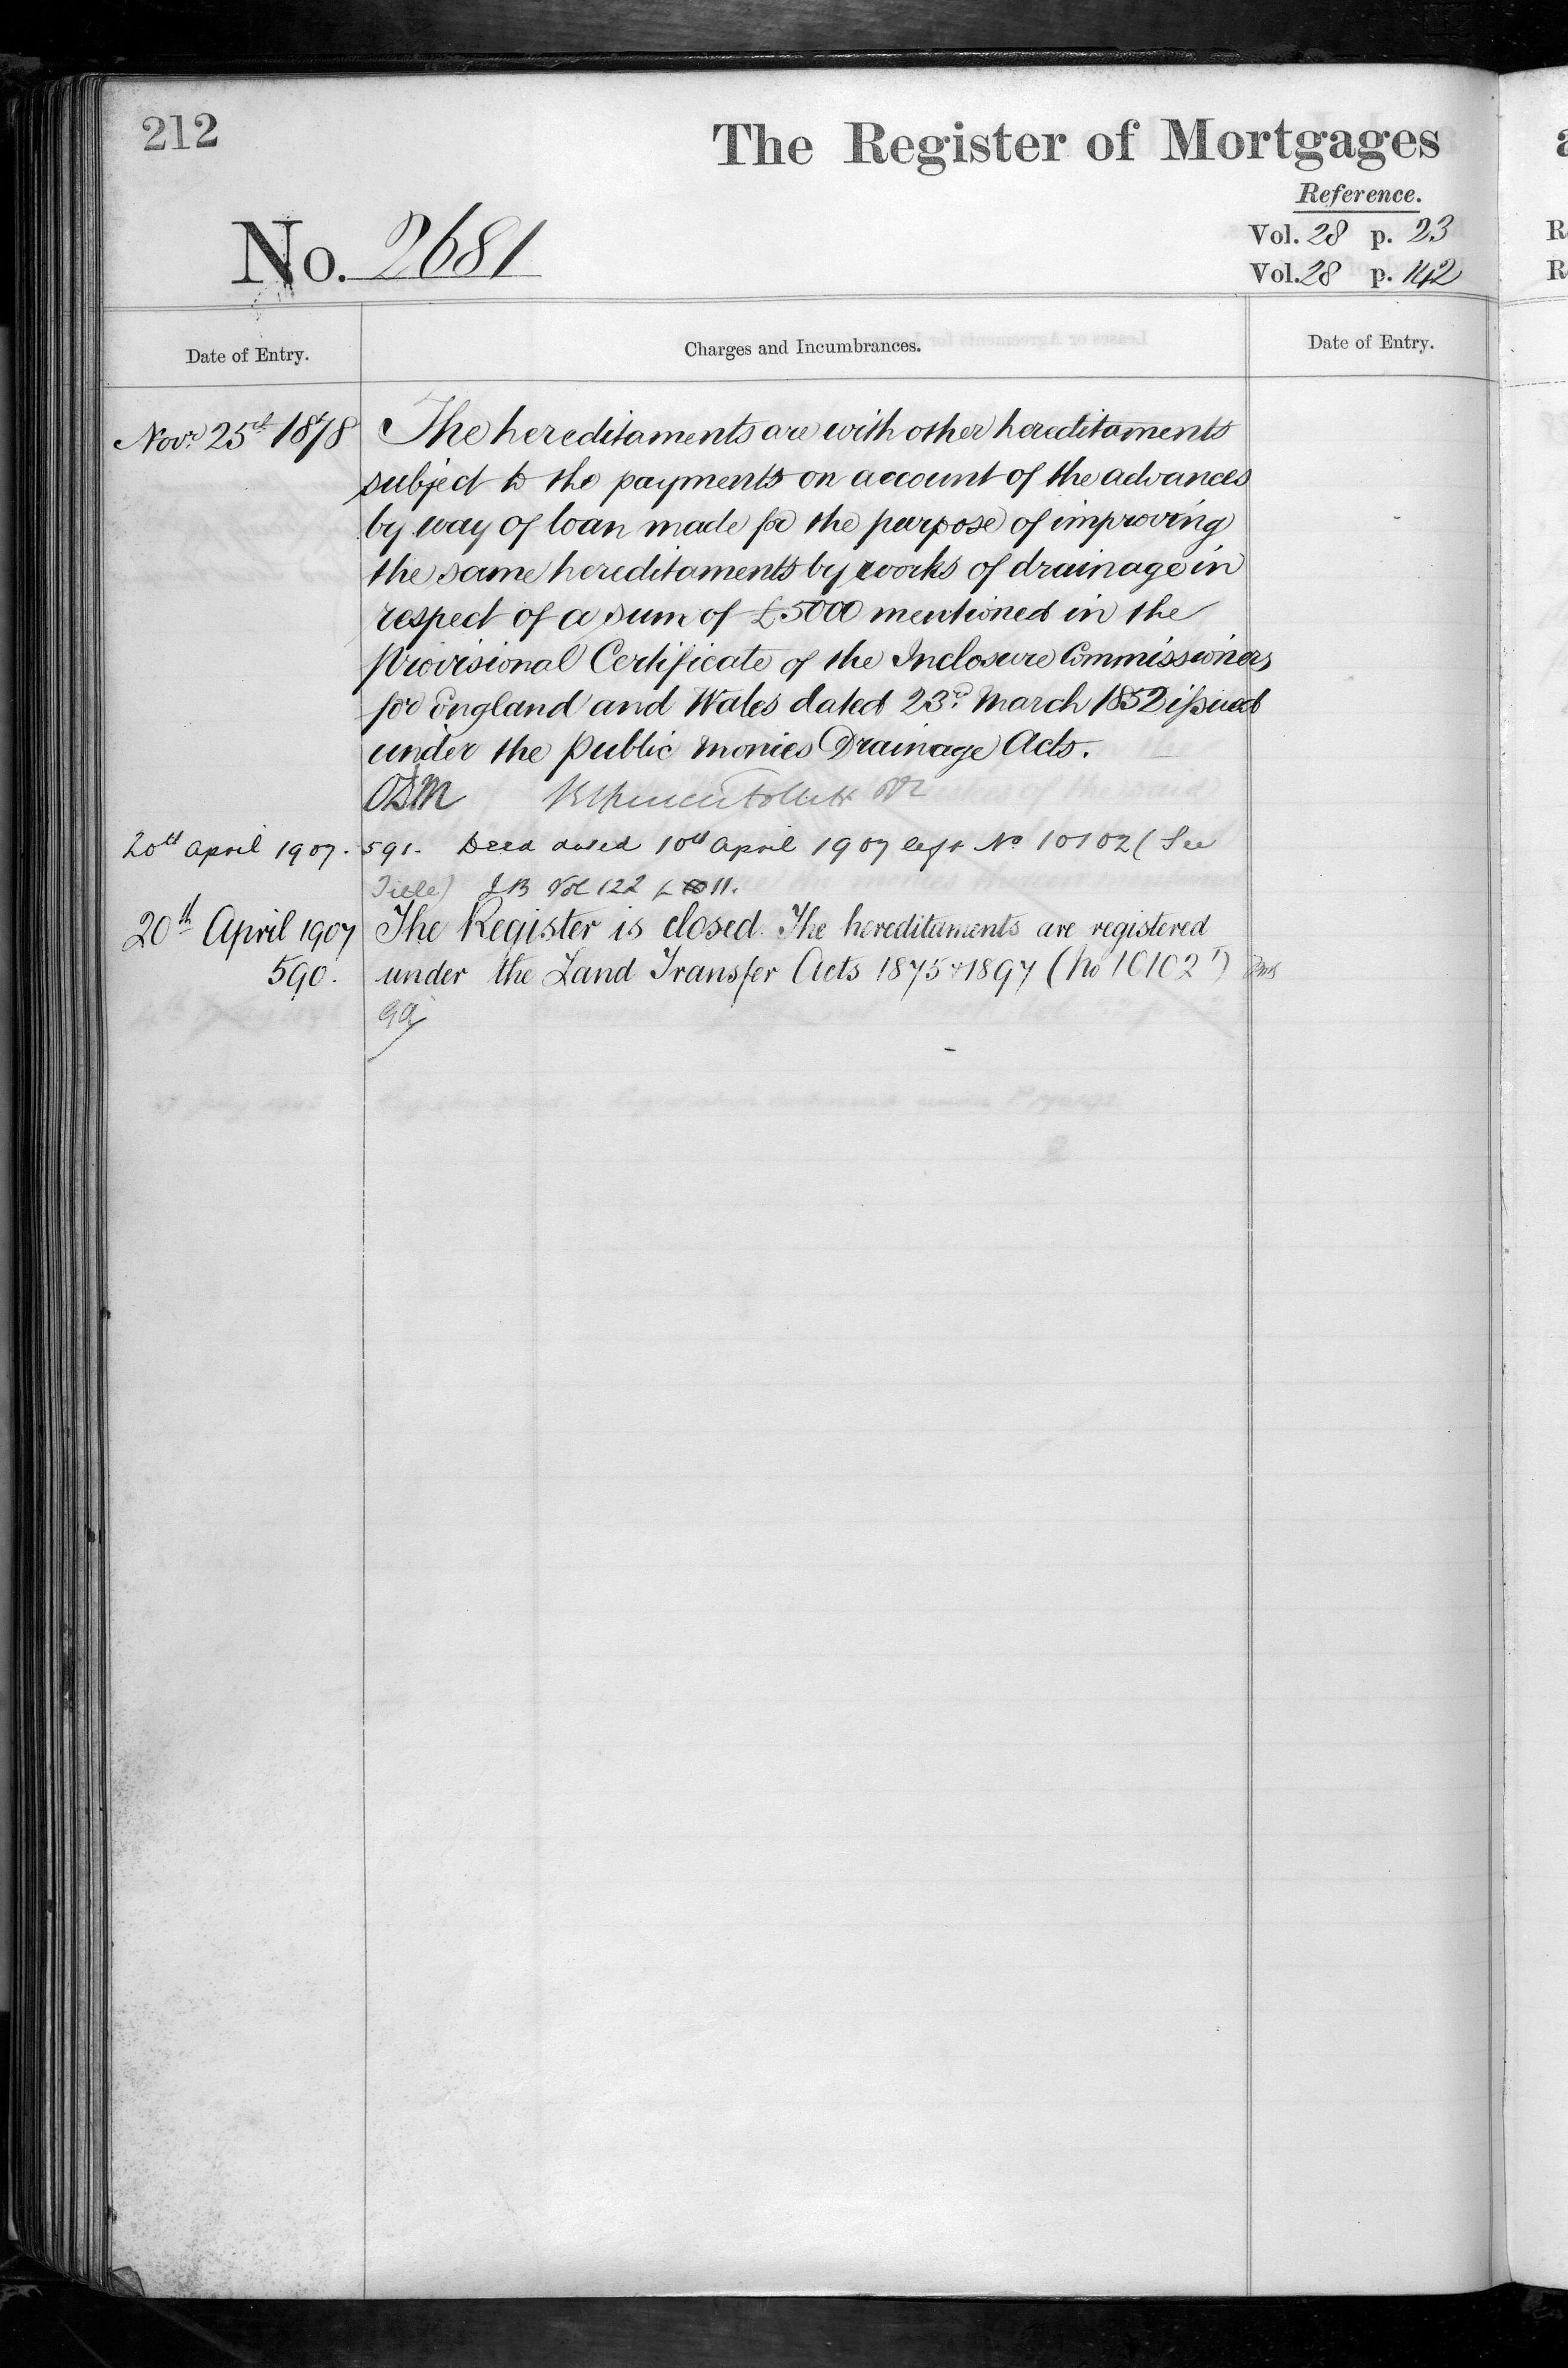 212
The Register of Mortgages
Reference.
No. 2681
Vol. 28 p. 23
Vol. 28 p. 142
Date of Entry.
Charges and Incumbrances.
Date of Entry.
Novr. 25th 1878
The hereditaments are with other hereditaments
subject to the payments on account of the advances
by way of loan made for the purpose of improving
the same hereditaments by works of drainage in
respect of a sum of £5000 mentioned in the
Provisional Certificate of the Inclosure Commissioners
for England and Wales dated 23rd March 1852 issued
under the Public Monies Drainage Acts.
20th April 1907. 591. Deed dated 10th April 1907 left No 10102 (See
Title) IB Vol 122 f 11.
20th April 1907
The Register is closed. The hereditaments are registered
590.
under the Land Transfer Acts 1875 & 1897 (No 10102)